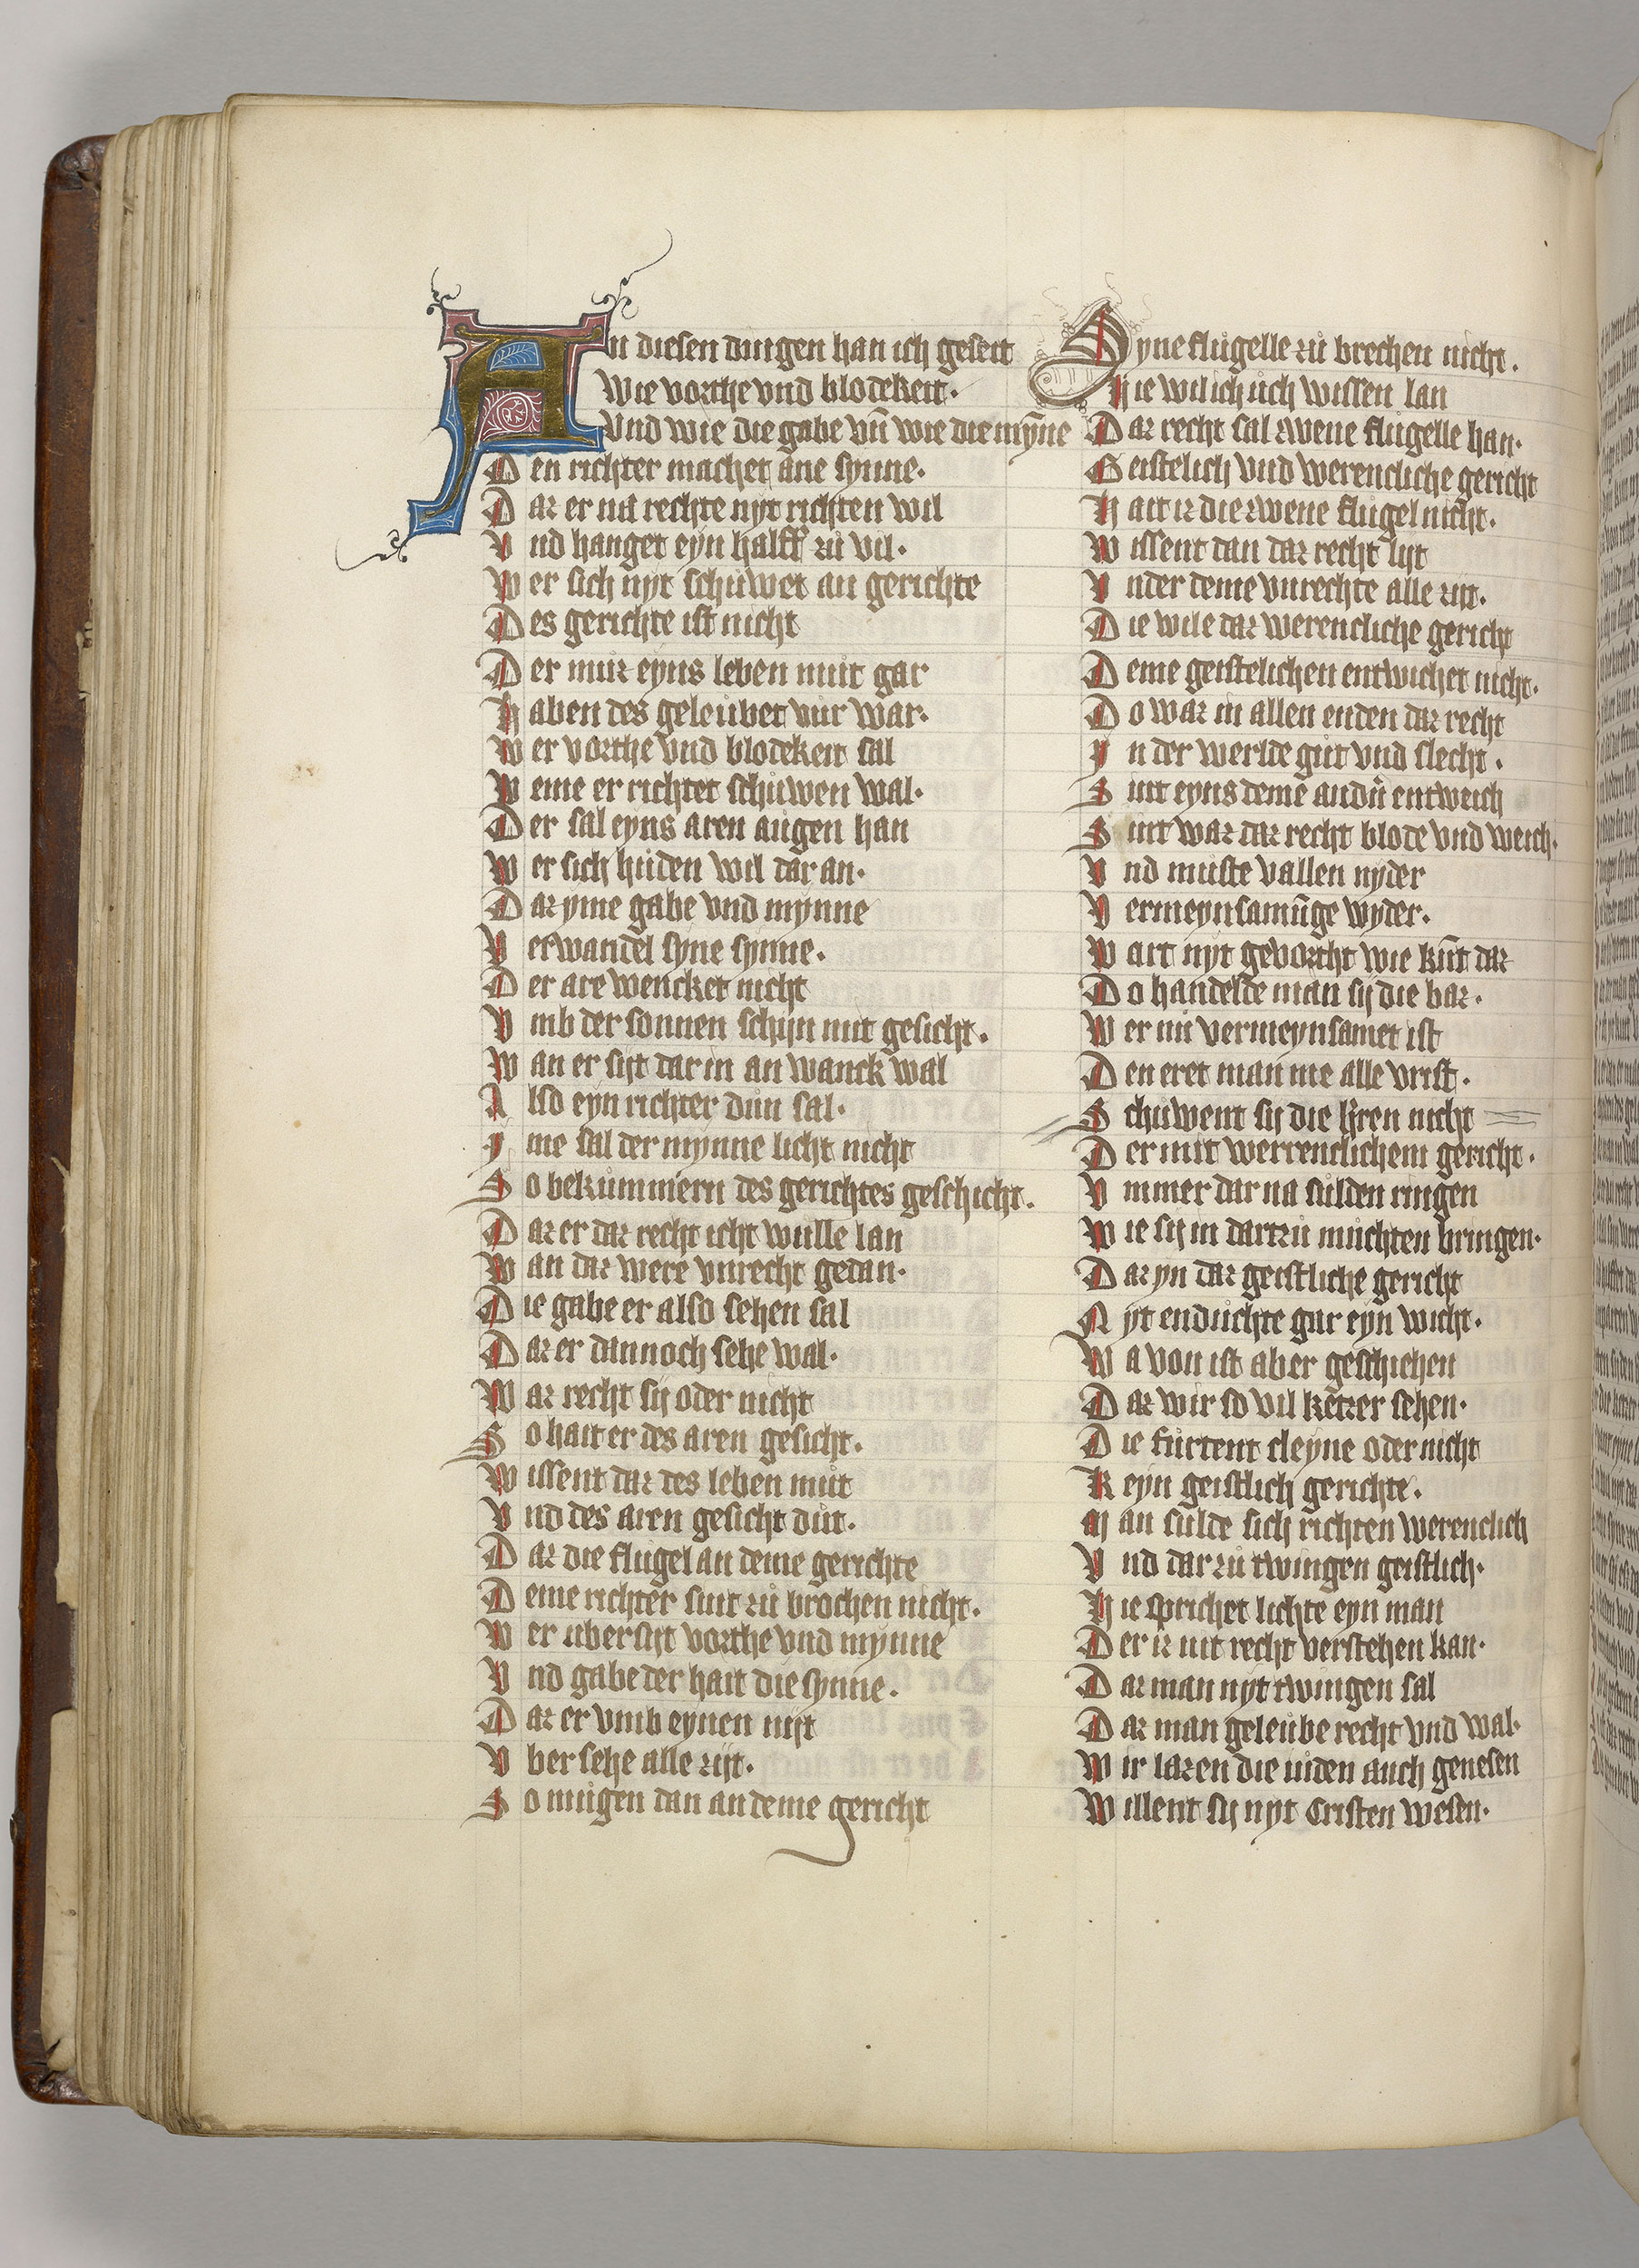 An diesen dingen han ich geseit
Wie vorthe vnd blodekeit·
Vnd wie die gabe vn̄ wie die mȳne
Den richter machet ane synne·
Dar er na rechte nyt richten wil
Vnd hanget eyn halff zů vil·
Wer sich nyt schuwet an gerichte
Des gerichte ist nicht
Der můz eyns leben můt gar
Haben des geleubet vur war·
Wer vorthe vnd blodekeit sal
Weme er richtet schuwen wal·
Der sal eyns aren augen han
Wer sich hůden wil dar an·
Daz yme gabe vnd mynne
Verwandel syne synne·
Der are wencket nicht
Vmb der sonnen schijn mit gesicht·
Wan er siht dar in an wanck wal
Also eyn richter důn sal·
Yme sal der mynne licht nicht
So bekummern des gerichtes geschicht·
Daz er daz recht icht wulle lan
Wan daz were vnrecht gedan·
Die gabe er also sehen sal
Daz er dannoch sehe wal·
Waz recht sy oder nicht
So hait er des aren gesicht·
Wissent daz des leben můt
Vnd des aren gesicht důt·
Daz die flugel an deme gerichte
Deme richter sint zů brochen nicht·
Wer uber siht vorthe vnd mynne
Vnd gabe der hait die synne·
Daz er vmb eynen mijt
Vber sehe alle zijt·
So mugen dan an deme gericht
Syne flugelle zů brechen nicht·
Hie wil ich uch wissen lan
Daz recht sal zwene flugelle han·
Geistelich vnd werencliche gericht
Hait iz die zwene flugel nicht·
Wissent dan daz recht lijt
Vnder deme vnrechte alle zijt·
Die wile daz werencliche gericht
Deme geistelichen entwichet nicht·
Do waz in allen enden daz recht
Yn der werlde gůt vnd slecht·
Sint eyns deme andn̄ entweich
Sint waz daz recht blode vnd weich·
Vnd muste vallen nyder
Vermeynsamūge wyder·
Wart nyt gevortht wie kūt daz
Do handelde man sy die baz·
Wer nu vermeynsamet ist
Den eret man me alle vrist·
Schuwent sy die kȳren nicht
Der mit werrenclichem gericht·
Vmmer dar na sulden ringen
Wie sy in dartzů muchten bringen·
Daz yn daz geistliche gericht
Nyt enduchte gar eyn wicht·
Wa von ist aber geschiehen
Daz wir so vil ketzer sehen·
Die furtent cleyne oder nicht
Keyn geistlich gerichte·
Man sulde sich richten werenclich
Vnd dar zů twingen geistlich·
Hie sprichet lichte eyn man
Der iz nit recht verstehen kan·
Daz man nyt twingen sal
Daz man geleube recht vnd wal·
Wir lazen die iuden auch genesen
Willent sy nyt Cristen wesen·